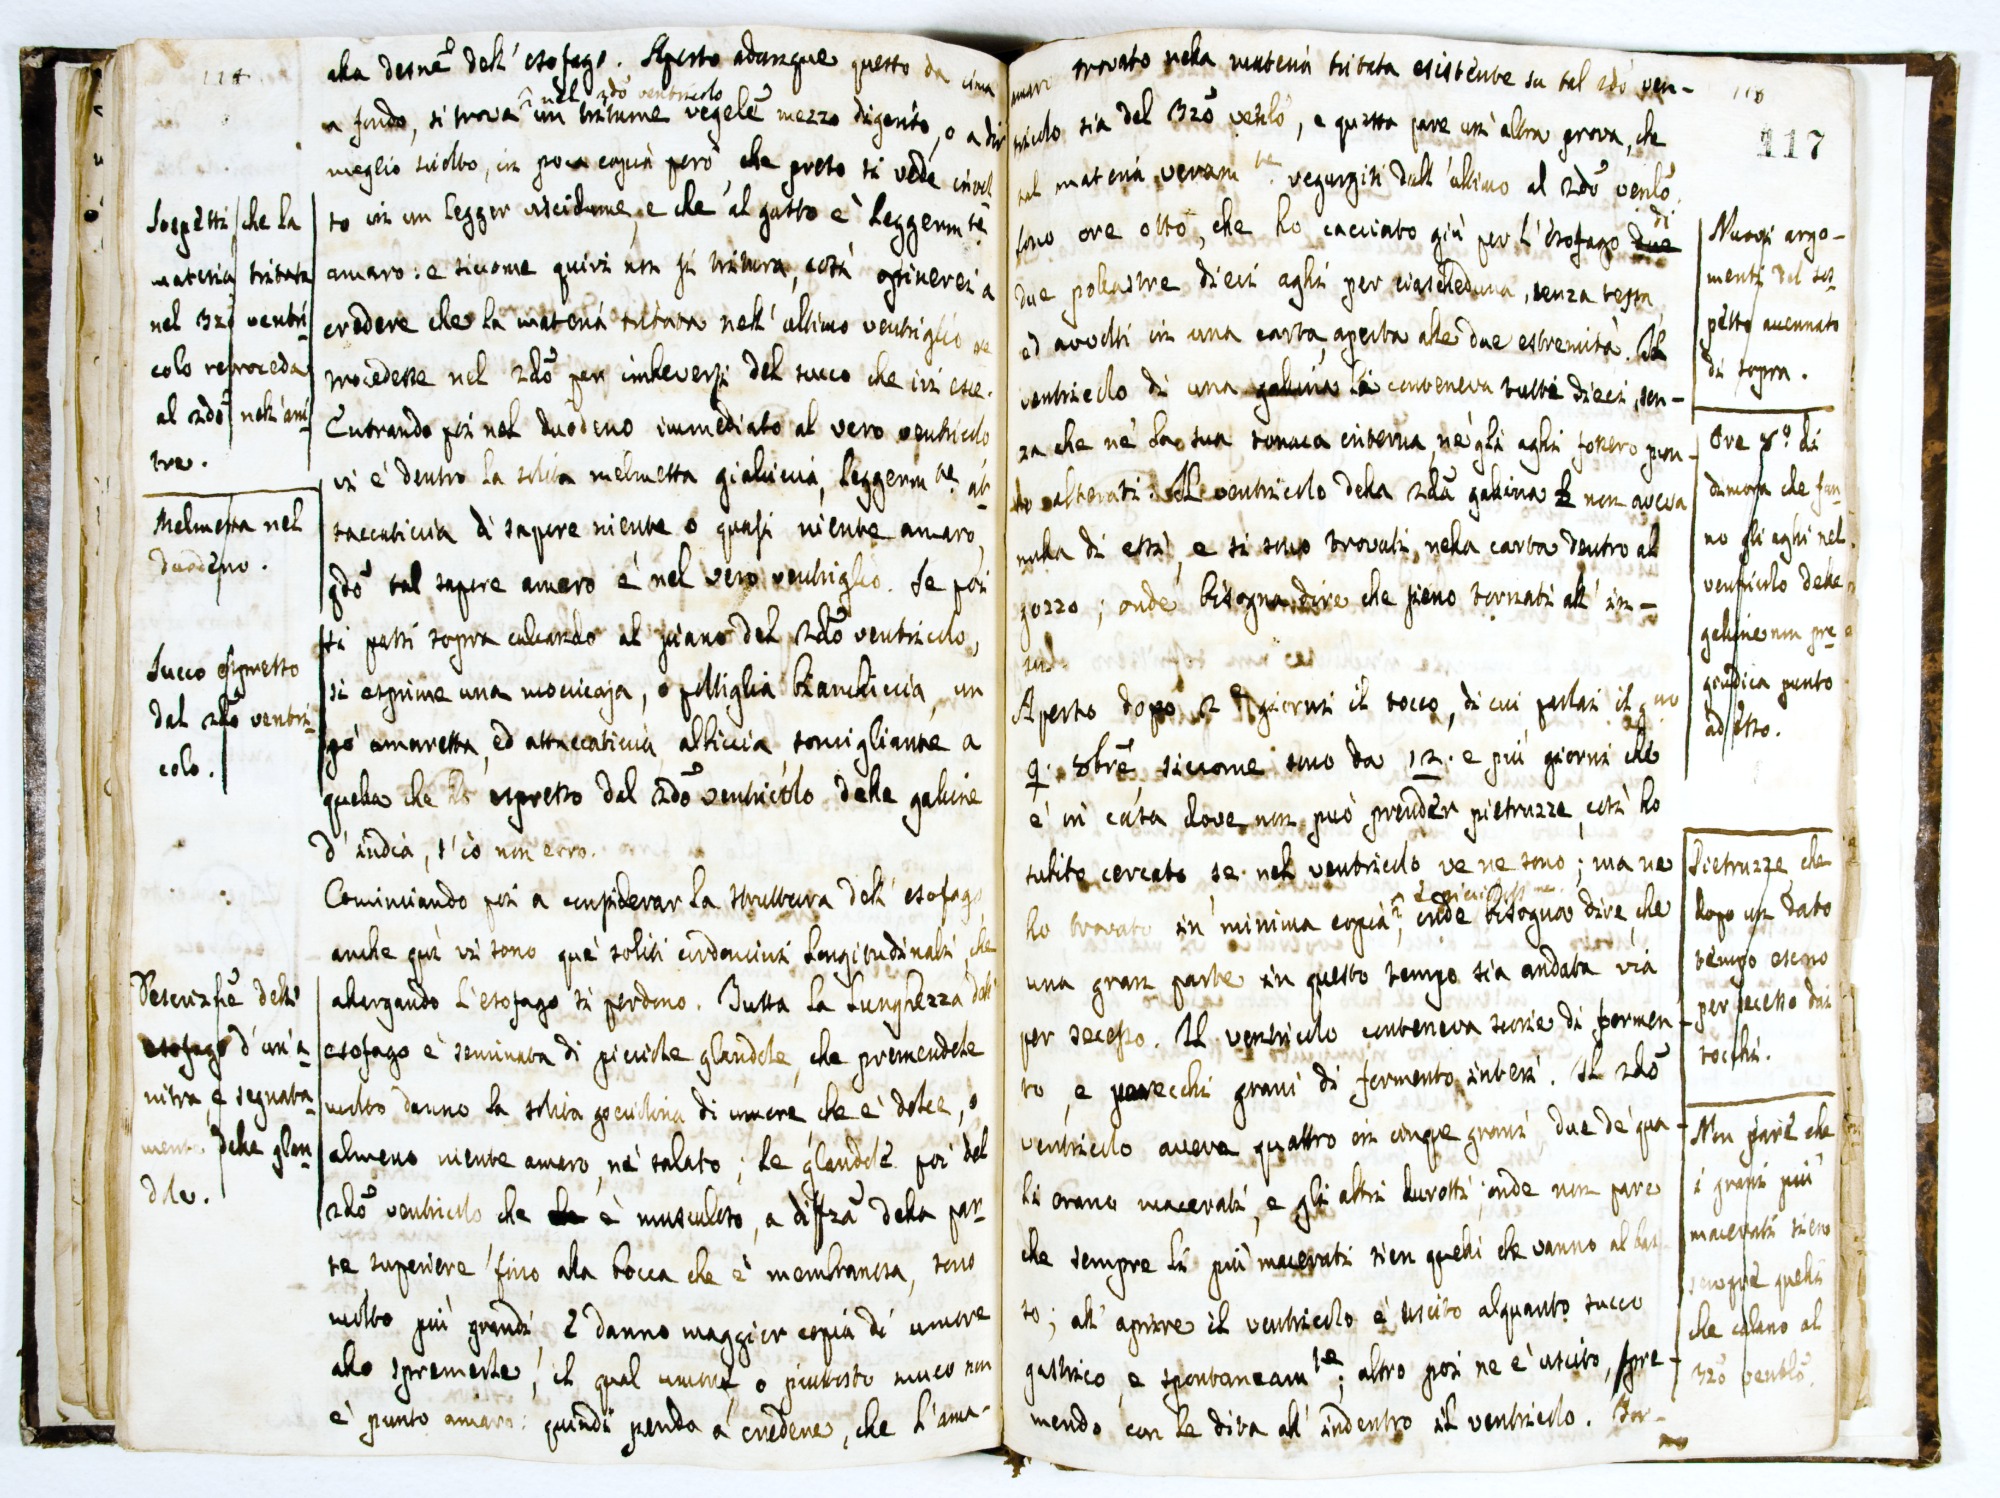 114.
alla desnē dell' esofago. Aperto adunque questo da cima
a fondo, si trova ^ nel 2dō ventricolo un tritume vegelē mezzo digerito, o a dir
meglio sciolto, in poca copia però, che preso si vede invol
to in un legger viscidume, e che al gusto è leggerm te
amaro: e siccome quivi non si tritura, così opinerei a
credere che la materia tritata nell' ultimo ventriglio re
trocedesse nel 2dō per imbeversi del succo che ivi esce.
Entrando poi nel duodeno immediato al vero ventricolo
vi è dentro la solita melmetta gialliccia, leggerm te at
taccaticcia di sapore niente o quasi niente amaro,
qdō tal sapore amaro è nel vero ventriglio. Se poi
si passi sopra calcando al piano del 2dō ventricolo,
si esprime una moccicaja, o poltiglia bianchiccia, un
pò amaretta, ed attaccaticcia, albiccia, somigliante a
quella che ho espresso dal 2dō ventricolo delle galline
d' india, s'io non erro.
Cominciando poi a considerar la struttura dell' esofago
anche qui vi sono que' soliti cordoncini longitudinali, che
allargando l'esofago si perdono. Tutta la lunghezza dell'
esofago è seminata di picciole glandole, che premendole
molto danno la solita gocciolina di umore che è dolce, o
almeno niente amaro, nè salato; le glandole poi del
2dō ventricolo che è muscoloso, a diffzā della par
te superiore fino alla bocca che è membranosa, sono
molto più grandi, e danno maggior copia di umore
allo spremerle, il qual umore, o piuttosto muco non
è punto amaro: quindi pendo a credere, che l'ama-
Sospetti che la
materia tritata
nel 3zō ventri
colo retroceda
al 2dō nell'ani
tre.
Melmetta nel
duodeno.
Succo espresso
dal 2dō ventri
colo.
Descrizīē dell'
esofago d'un'a
nitra, e segnata
mente delle glan
dole.
117
amaro trovato nella materia tritata esistente su tal 2dō ven-
tricolo sia del 3zō ventlō, e questa pare un' altra prova, che
tal materia veram te regurgiti dall' ultimo al 2dō ventlō.
Sono ore otto, che ho cacciato giù per l'esofago di
due pollastre dieci aghi per ciascheduna, senza testa,
ed avvolti in una carta aperta alle due estremità. Il
ventricolo di una gallina li conteneva tutti dieci, sen-
za che nè la sua tonaca interna, nè gli aghi fossero pun-
to alterati. Il ventricolo della 2dā gallina non aveva
nulla di essi, e si sono trovati nella carta dentro al
gozzo; onde bisogna dire che sieno tornati all' in-
sù.
Aperto dopo 2 giorni il tocco, di cui parlai il
9. 8brē, siccome sono da 12. e più giorni che
è in casa dove non può prender pietruzze, così ho
subito cercato se nel ventricolo ve ne sono; ma ne
ho trovato in minima copia ^ e picciolissme., onde bisogna dire, che
una gran parte in questo tempo sia andata via
per secesso. Il ventricolo conteneva scorie di formen
to, e parecchi grani di formento interi. Il 2dō
ventricolo aveva quattro in cinque grani, due de' qua
li erano macerati, e gli altri durotti; onde non pare
che sempre li più macerati sien quelli che vanno al bas
so; all' aprire il ventricolo è uscito alquanto succo
gastrico, e spontaneam te; altro poi ne è uscito, spre-
mendo con le dita all' indentro il ventricolo. Tor-
Nuovi argo-
menti del sos
petto accennato
di sopra.
Ore 8º. di
dimora che fan
no gli aghi nel
ventricolo delle
galline non pre
giudica punto
ad esso.
Pietruzze che
dopo un dato
tempo escono
per secesso dai
tocchi.
Non pare che
i grani più
macerati sieno
sempre quelli
che calano al
3zō ventlō.